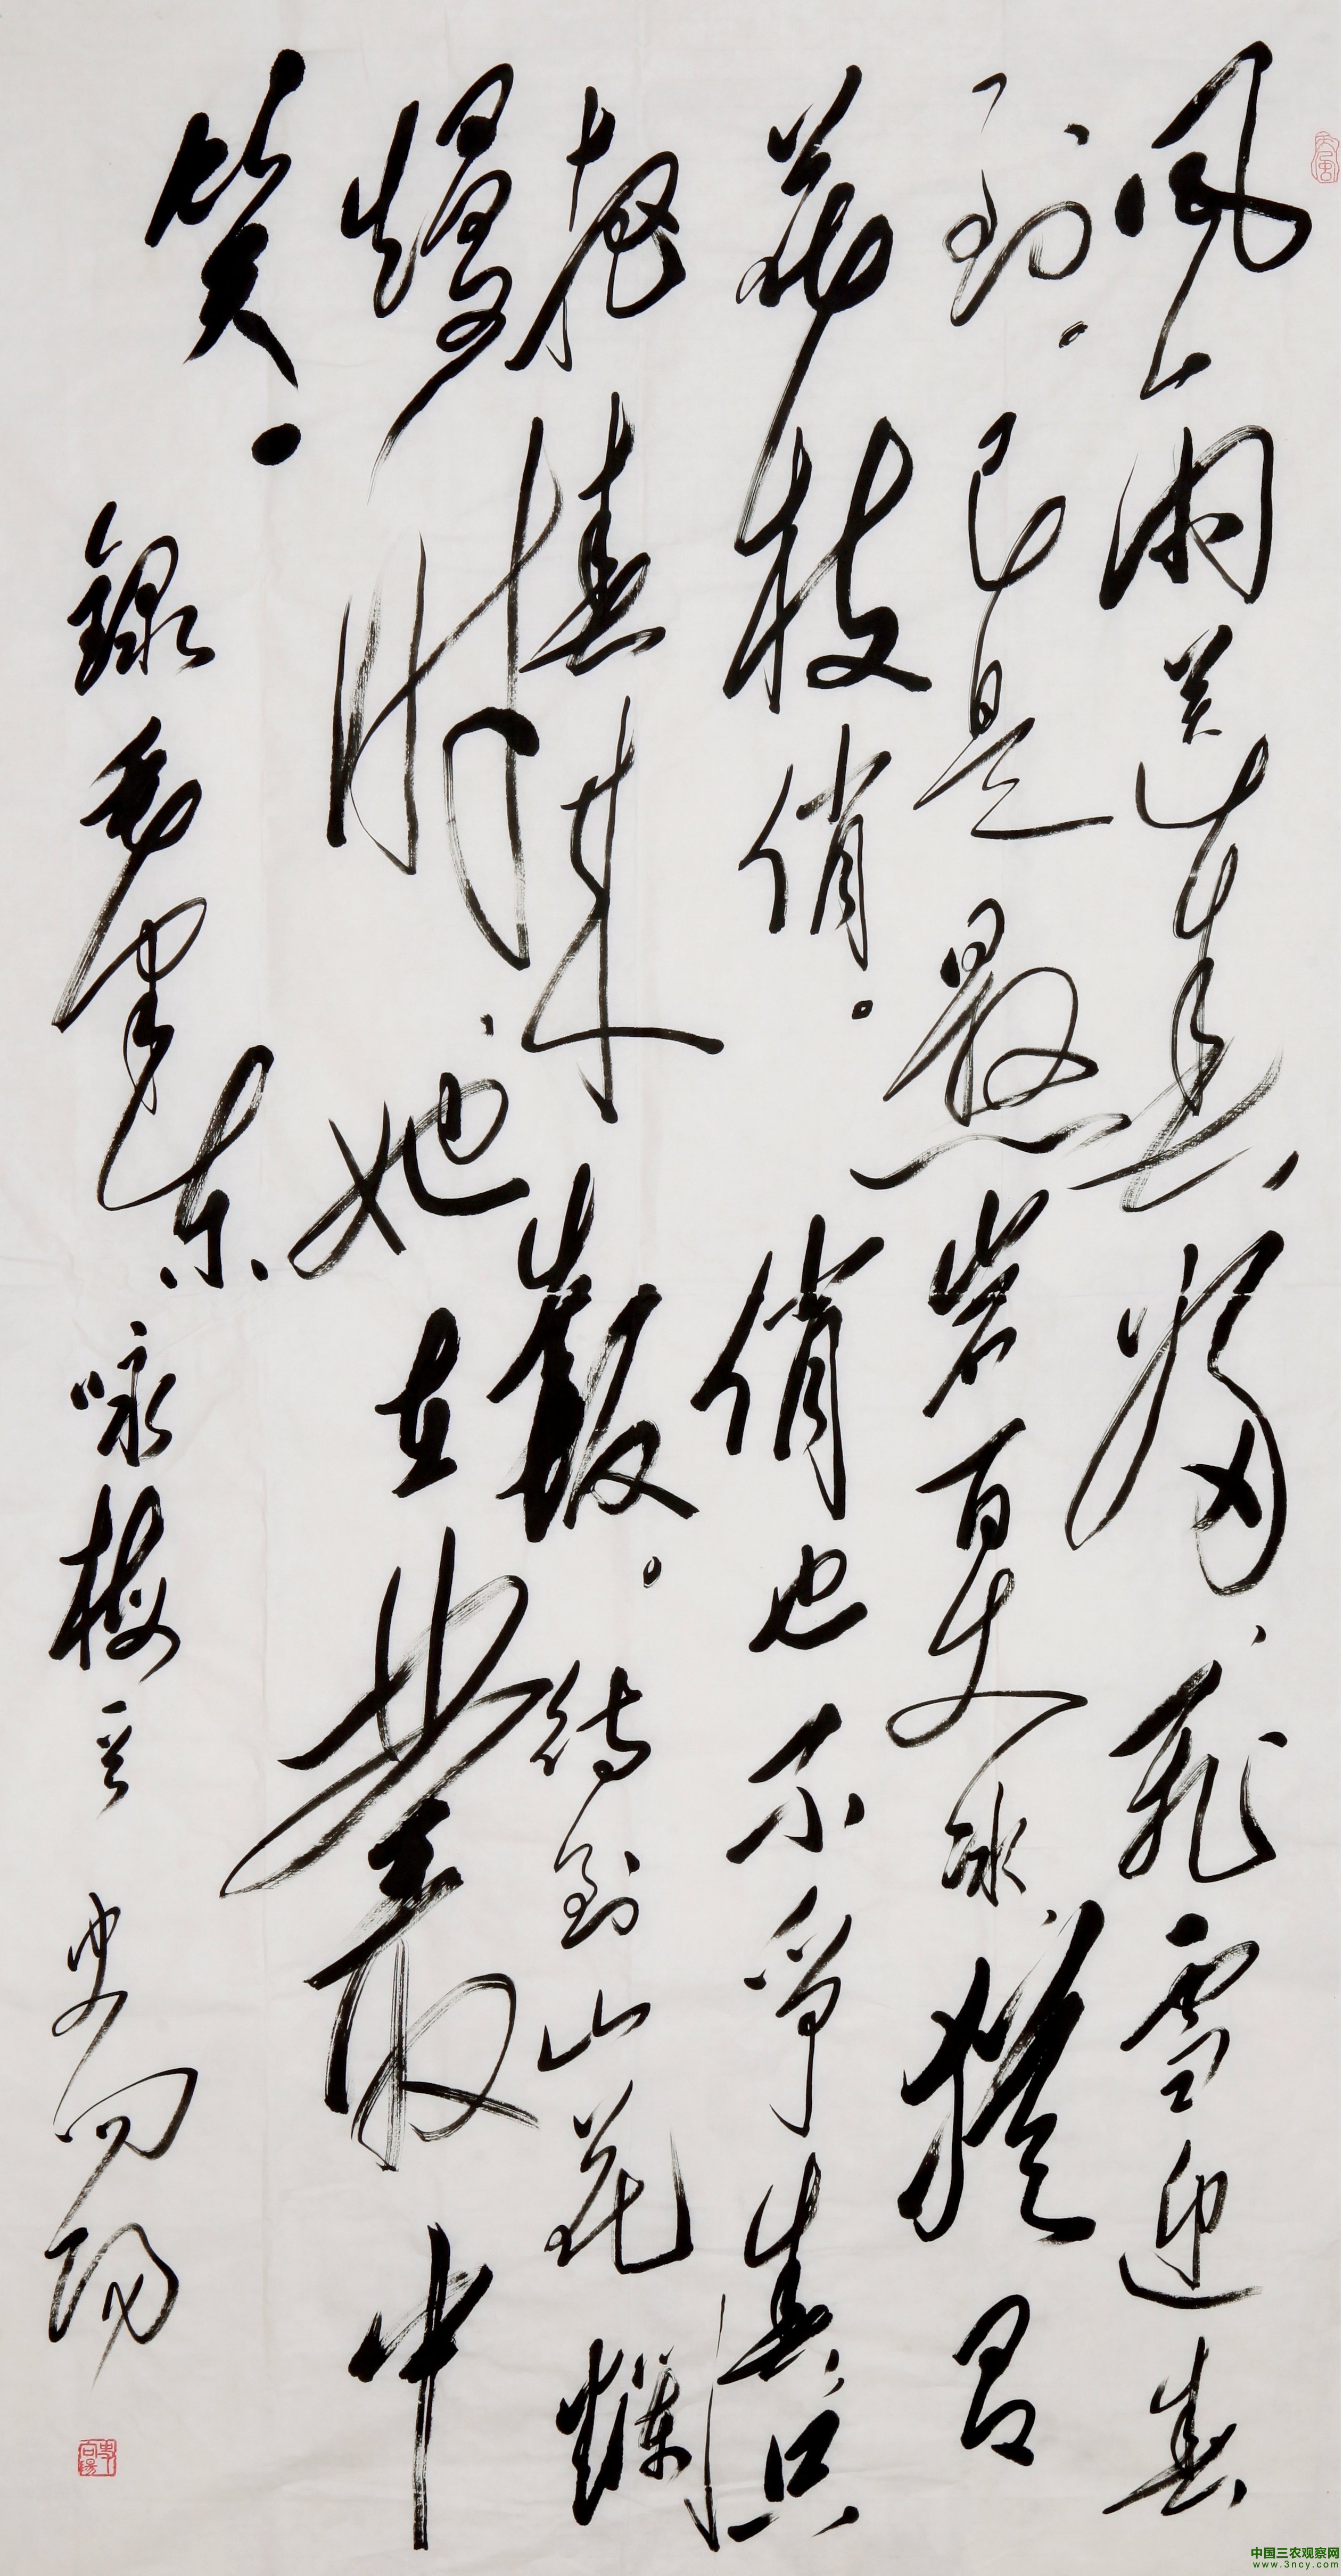 风雨送春,归,飞雪迎春
到。已是悬岩百丈冰,犹有
花枝俏。俏也不争春,只
把春来报。待到山花烂
熳时,她在丛中
笑。
録毛泽东咏梅 史向阳
史向陽
中国三农观察网
www.3ncy.com